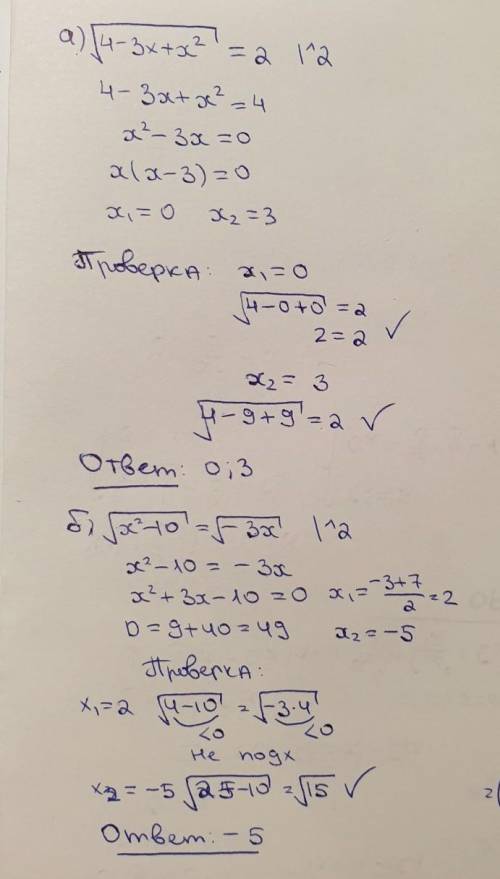 а) √(4-3x+x²) = 2 |^2
4-3x+x²=4
x²-3x=0
x(x-3)=0
x₁=0 x₂=3
Проверка: x₁=0
√(4-0+0)=2
2=2 ✓
x₂= 3
√(4-9+9)=2 ✓
Ответ: 0;3
б) √(x²-10)=√(-3x) |^2
x²-10=-3x
x²+3x-10=0 x₁=(-3+7)/2=2
D=9+40=49 x₂=-5
Проверка:
x₁=2 √(4-10)=√(-3·4)
<0 <0
не подх
x₂=-5 √(25-10)=√15 ✓
Ответ: -5